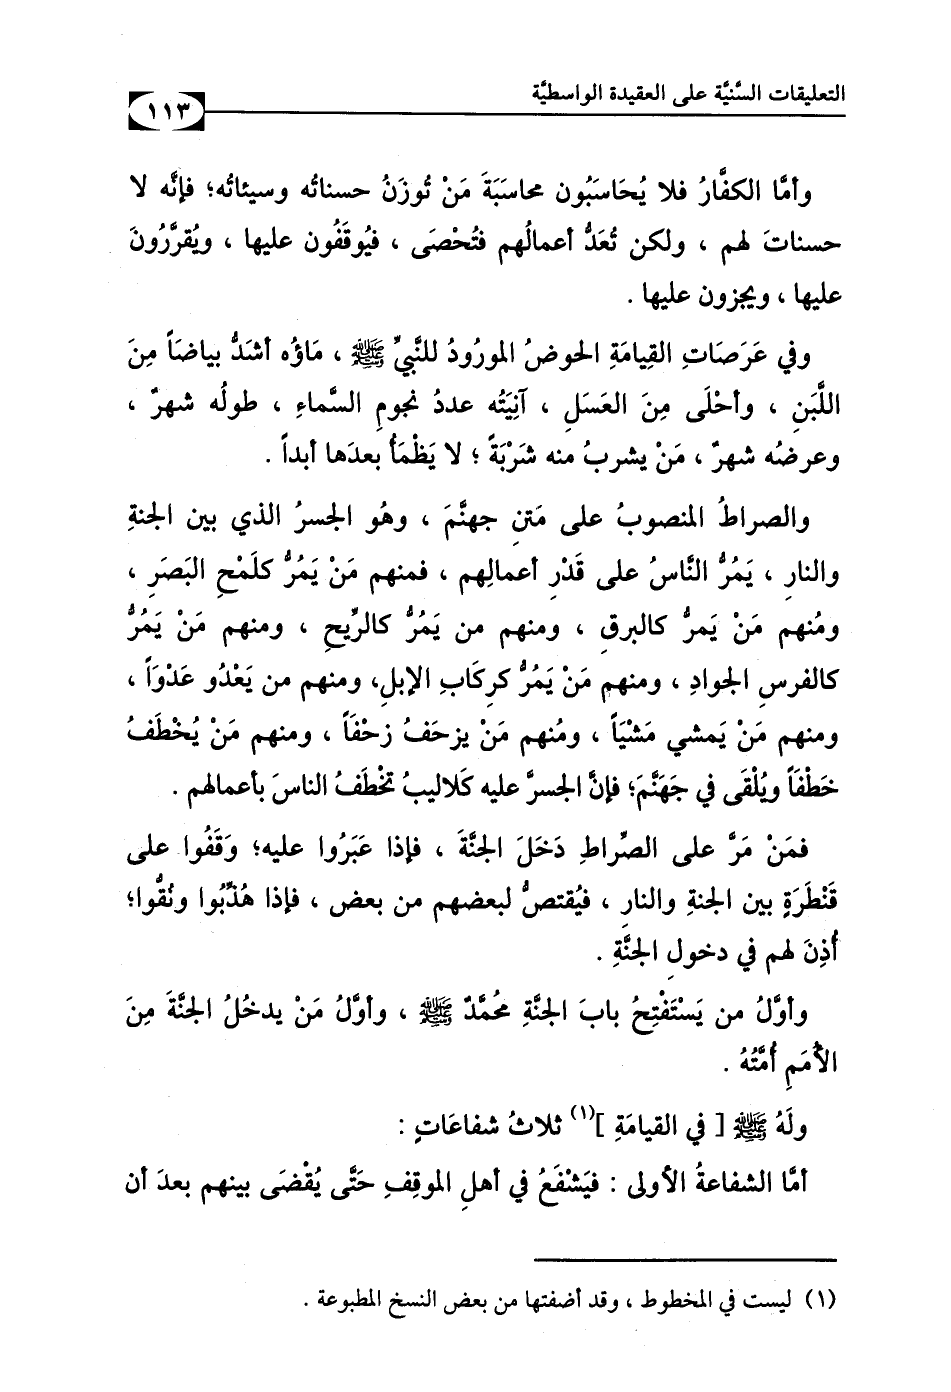 التعليقات السَّنيَّة على العقيدة الواسطيَّة
١١٣
وأمَّا الكفَّارُ فلا يُحَاسَبُون محاسَبَةَ مَنْ تُوزَنُ حسناتُه وسيئاتُه؛ فإنَّه لا
حسناتَ لهم ، ولكن تُعَدُّ أعمالُهم فتُحْصَى ، فيُوقَفُون عليها ، ويُقرَّرُونَ
عليها ، ويجزون عليها .
وفي عَرَصَاتِ القِيامَةِ الحوضُ المورُودُ للنَّبيِّ ﷺ ، مَاؤُه أشَدُّ بياضَاً مِنَ
اللَّبَنِ ، وأحْلَى مِنَ العَسَلِ ، آنِيَتُه عددُ نجومِ السَّماءِ ، طولُه شهرٌ ،
وعرضُه شهرٌ ، مَنْ يشربُ منه شَرْبَةً ؛ لا يَظْمَأُ بعدَها أبداً .
والصراطُ المنصوبُ على مَتنِ جهنَّمَ ، وهُو الجسرُ الذي بين الجنةِ
والنارِ ، يَمُرُّ النَّاسُ على قَدْرِ أعمالِهم ، فمنهم مَنْ يَمُرُّ كلَمْحِ البَصَرِ ،
ومُنهم مَنْ يَمرُّ كالبرقِ ، ومنهم من يَمُرُّ كالرِّيحِ ، ومنهم مَنْ يَمُرُّ
كالفرسِ الجوادِ ، ومنهم مَنْ يَمُرُّ كرِكَابِ الإبلِ، ومنهم من يَعْدُو عَدْوَاً ،
ومنهم مَنْ يَمشي مَشْيَاً ، ومُنهم مَنْ يزحَفُ زحْفَاً ، ومنهم مَنْ يُخْطَفُ
خَطْفَاً ويُلْقَى في جَهَنَّمَ؛ فإنَّ الجسرَّ عليه كَلاليبُ تخْطَفُ الناسَ بأعمالهم .
فمَنْ مَرَّ على الصِّراطِ دَخَلَ الجنَّةَ ، فإذا عَبَرُوا عليه؛ وَقَفُوا على
قَنْطَرَةٍ بين الجنةِ والنارِ ، فيُقتصُّ لبعضهم من بعض ، فإذا هُذِّبُوا ونُقُّوا؛
أُذِنَ لهم في دخولِ الجنَّةِ .
وأوَّلُ من يَسْتَفْتِحُ بابَ الجنَّةِ محُمَّدٌ ﷺ ، وأوَّلُ مَنْ يدخُلُ الجنَّةَ مِنَ
الأُمَمِ أُمَّتُهُ .
ولَهُ ﷺ [ في القيامَةِ ](١) ثلاثُ شفاعَاتٍ :
أمَّا الشفاعةُ الأولى : فيَشْفَعُ في أهلِ الموقِفِ حَتَّى يُقْضَى بينهم بعدَ أن
(١) ليست في المخطوط ، وقد أضفتها من بعض النسخ المطبوعة .